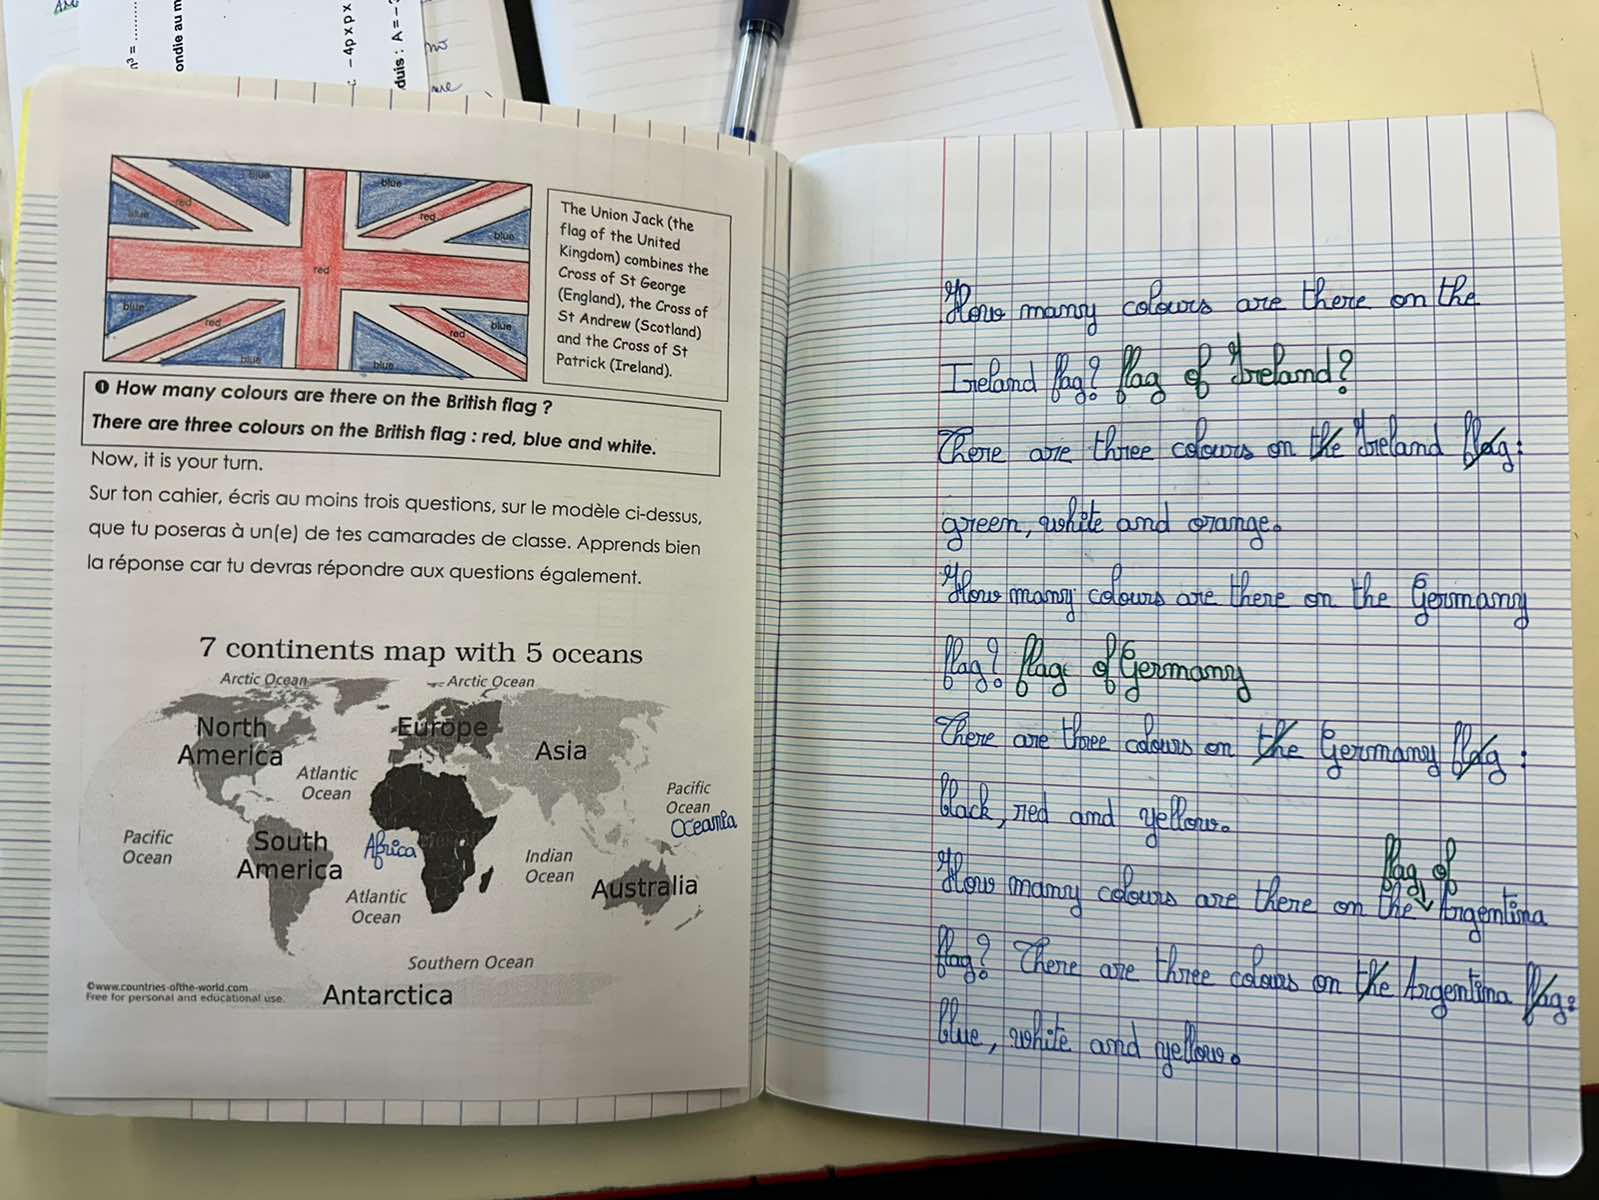 n³ = ..........
ondie au m
- 4p x p x
duis : A = -
me
blue
blue
red
blue
red
blue
red
blue
red
red
blue
blue
blue
The Union Jack (the
flag of the United
Kingdom) combines the
Cross of St George
(England), the Cross of
St Andrew (Scotland)
and the Cross of St
Patrick (Ireland).
❶ How many colours are there on the British flag ?
There are three colours on the British flag : red, blue and white.
Now, it is your turn.
Sur ton cahier, écris au moins trois questions, sur le modèle ci-dessus,
que tu poseras à un(e) de tes camarades de classe. Apprends bien
la réponse car tu devras répondre aux questions également.
7 continents map with 5 oceans
Arctic Ocean
Arctic Ocean
North
America
Europe
Asia
Atlantic
Ocean
Pacific
Ocean
Oceania
Pacific
Ocean
South
America
Africa
Indian
Ocean
Australia
Atlantic
Ocean
Southern Ocean
©www.countries-ofthe-world.com
Free for personal and educational use.
Antarctica
How many colours are there on the
Ireland flag? flag of Ireland?
There are three colours on the Ireland flag:
green, white and orange.
How many colours are there on the Germany
flag? flag of Germany
There are three colours on the Germany flag :
black, red and yellow.
flag of
How many colours are there on the Argentina
flag? There are three colours on the Argentina flag:
blue, white and yellow.